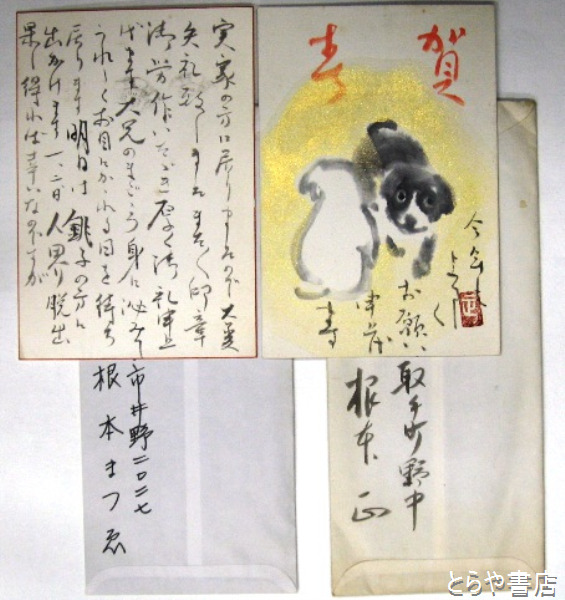 実家の方に戻り申したので大変
失礼致しました まことに印章
御労作いただき厚く御礼申上
げます 大兄のまごころ身に沁みて
うれしくお目にかかれる日を待ち
戻ります 明日は銚子の方に
出かけます 一、二日人界の脱出
果し得れば幸いなのですが
賀春
今年も
よろしく
お願い
申し
ます
市井野二〇二七
根本まつゑ
取手町野中
根本正
とらや書店